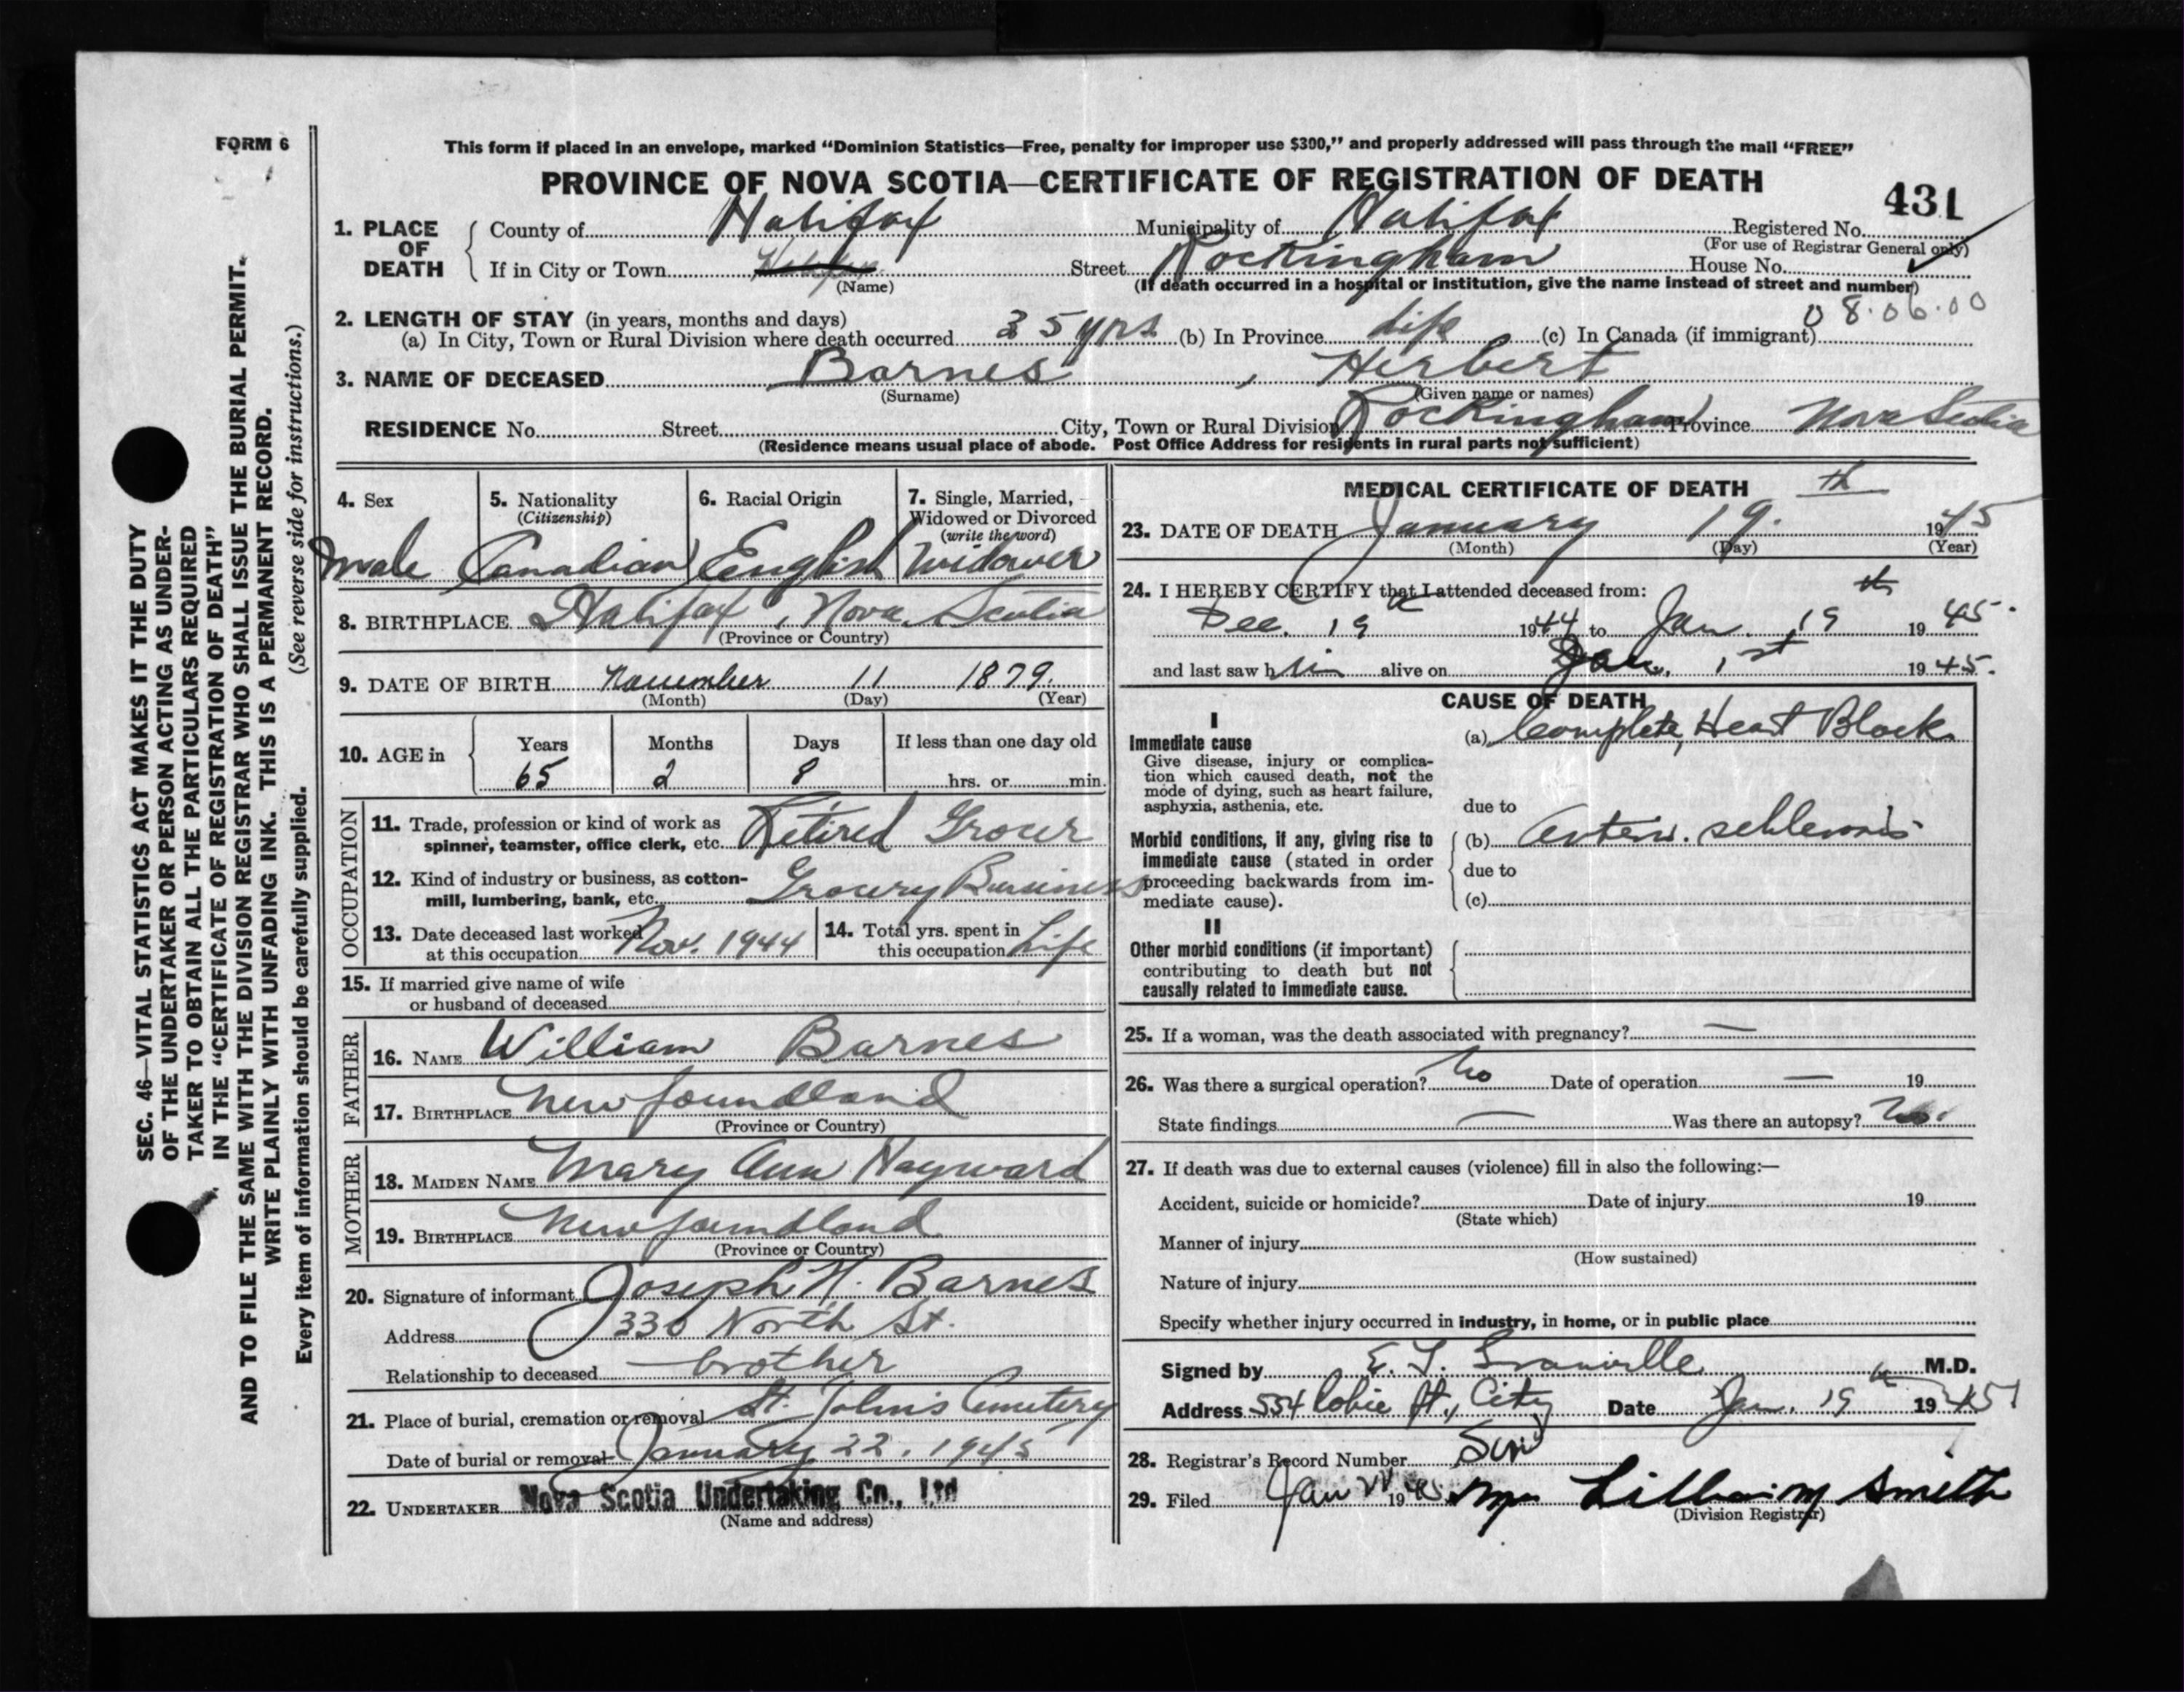 FORM 6
SEC. 46—VITAL STATISTICS ACT MAKES IT THE DUTY
OF THE UNDERTAKER OR PERSON ACTING AS UNDER-
TAKER TO OBTAIN ALL THE PARTICULARS REQUIRED
IN THE "CERTIFICATE OF REGISTRATION OF DEATH"
AND TO FILE THE SAME WITH THE DIVISION REGISTRAR WHO SHALL ISSUE THE BURIAL PERMIT.
WRITE PLAINLY WITH UNFADING INK. THIS IS A PERMANENT RECORD.
Every item of information should be carefully supplied. (See reverse side for instructions.)
This form if placed in an envelope, marked "Dominion Statistics—Free, penalty for improper use $300," and properly addressed will pass through the mail "FREE"
PROVINCE OF NOVA SCOTIA—CERTIFICATE OF REGISTRATION OF DEATH
431
1. PLACE OF DEATH
County of Halifax Municipality of Halifax Registered No.
(For use of Registrar General only)
If in City or Town Street Rockingham House No.
(Name) (If death occurred in a hospital or institution, give the name instead of street and number)
08.06.00
2. LENGTH OF STAY (in years, months and days)
(a) In City, Town or Rural Division where death occurred 35 yrs (b) In Province Life (c) In Canada (if immigrant)
3. NAME OF DECEASED Barnes, Herbert
(Surname) (Given name or names)
RESIDENCE No. Street City, Town or Rural Division Rockingham Province Nova Scotia
(Residence means usual place of abode. Post Office Address for residents in rural parts not sufficient)
4. Sex
male
5. Nationality
(Citizenship)
Canadian
6. Racial Origin
English
7. Single, Married,
Widowed or Divorced
(write the word)
Widower
8. BIRTHPLACE Halifax, Nova Scotia
(Province or Country)
9. DATE OF BIRTH November 11 1879.
(Month) (Day) (Year)
10. AGE in
Years Months Days If less than one day old
65 2 8 hrs. or min.
OCCUPATION
11. Trade, profession or kind of work as
spinner, teamster, office clerk, etc. Retired Grocer
12. Kind of industry or business, as cotton-
mill, lumbering, bank, etc. Grocery Business
13. Date deceased last worked
at this occupation Nov. 1944
14. Total yrs. spent in
this occupation Life
15. If married give name of wife
or husband of deceased
FATHER
16. NAME William Barnes
17. BIRTHPLACE Newfoundland
(Province or Country)
MOTHER
18. MAIDEN NAME Mary Ann Hayward
19. BIRTHPLACE Newfoundland
(Province or Country)
20. Signature of informant Joseph H. Barnes
Address 330 North St.
Relationship to deceased brother
21. Place of burial, cremation or removal St. John's Cemetery
Date of burial or removal January 22, 1945
22. UNDERTAKER Nova Scotia Undertaking Co., Ltd
(Name and address)
MEDICAL CERTIFICATE OF DEATH
23. DATE OF DEATH January 19th 1945
(Month) (Day) (Year)
24. I HEREBY CERTIFY that I attended deceased from:
Dec. 19 1944 to Jan. 19th 1945.
and last saw him alive on Jan. 1st 1945.
CAUSE OF DEATH
I
Immediate cause
Give disease, injury or complica-
tion which caused death, not the
mode of dying, such as heart failure,
asphyxia, asthenia, etc.
(a) Complete Heart Block
due to
Morbid conditions, if any, giving rise to
immediate cause (stated in order
proceeding backwards from im-
mediate cause).
(b)
due to
(c)
II
Other morbid conditions (if important)
contributing to death but not
causally related to immediate cause.
25. If a woman, was the death associated with pregnancy? —
26. Was there a surgical operation? No Date of operation — 19
State findings — Was there an autopsy? No.
27. If death was due to external causes (violence) fill in also the following:—
Accident, suicide or homicide? Date of injury 19
(State which)
Manner of injury
(How sustained)
Nature of injury
Specify whether injury occurred in industry, in home, or in public place
Signed by E. L. M.D.
Address 554 Robie St., City Date Jan. 19th 1945
28. Registrar's Record Number
29. Filed Jan 1945 Smith
(Division Registrar)